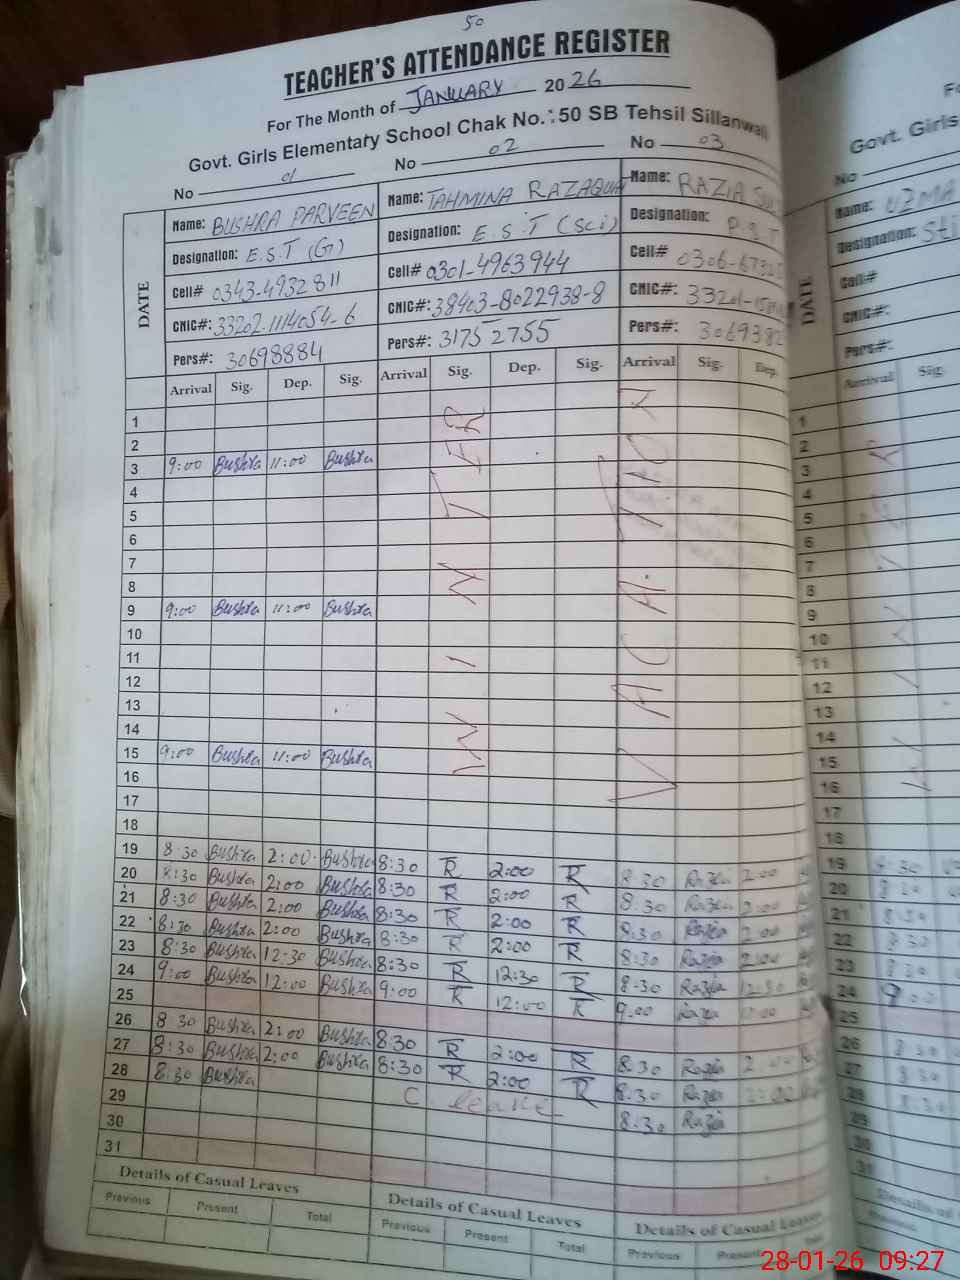 50
TEACHER'S ATTENDANCE REGISTER
For The Month of JANUARY 2026
Govt. Girls Elementary School Chak No.: 50 SB Tehsil Sillanwali
No 01 No 02 No 03
DATE
Name: BUSHRA PARVEEN
Designation: E.S.T (G)
Cell# 0343-4932811
CNIC#: 33202-1114054-6
Pers#: 30698884
Name: TAHMINA RAZAQUA
Designation: E.S.T (Sci)
Cell# 0301-4963944
CNIC#: 38403-8022938-8
Pers#: 31752755
Name: RAZIA
Designation: P.S.T
Cell# 0306-
CNIC#: 33201-
Pers#: 3069382
Arrival Sig. Dep. Sig. Arrival Sig. Dep. Sig. Arrival Sig. Dep.
WINTER VACATION
1
2
3 9:00 Bushra 11:00 Bushra
4
5
6
7
8
9 9:00 Bushra 11:00 Bushra
10
11
12
13
14
15 9:00 Bushra 11:00 Bushra
16
17
18
19 8:30 Bushra 2:00 Bushra 8:30 R 2:00 R 8:30 Razia 2:00
20 8:30 Bushra 2:00 Bushra 8:30 R 2:00 R 8:30 Razia 2:00
21 8:30 Bushra 2:00 Bushra 8:30 R 2:00 R 8:30 Razia 2:00
22 8:30 Bushra 2:00 Bushra 8:30 R 2:00 R 8:30 Razia 2:00
23 8:30 Bushra 12:30 Bushra 8:30 R 12:30 R 8:30 Razia 12:30
24 9:00 Bushra 12:00 Bushra 9:00 R 12:00 R 9:00 Razia 12:00
25
26 8:30 Bushra 2:00 Bushra 8:30 R 2:00 R 8:30 Razia 2:00
27 8:30 Bushra 2:00 Bushra 8:30 R 2:00 R 8:30 Razia 2:00
28 8:30 Bushra C. leave 8:30 Razia
29
30
31
Details of Casual Leaves Details of Casual Leaves Details of Casual Leaves
Previous Present Total Previous Present Total Previous Present
Govt. Girls
No
DATE
Name: UZMA
Designation: STI
Cell#
CNIC#:
Pers#:
Arrival Sig.
1
2
3
4
5
6
7
8
9
10
11
12
13
14
15
16
17
18
19 8:30
20 8:30
21 8:30
22 8:30
23 8:30
24 9:00
25
26 8:30
27 8:30
28 8:30
29
30
31
Previous
28-01-26 09:27